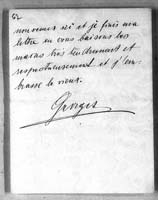 62
nouveau ici et je finis ma
lettre en vous baisant les
mains très tendrement et
respectueusement et j'em-
brasse le vieux.
Georges